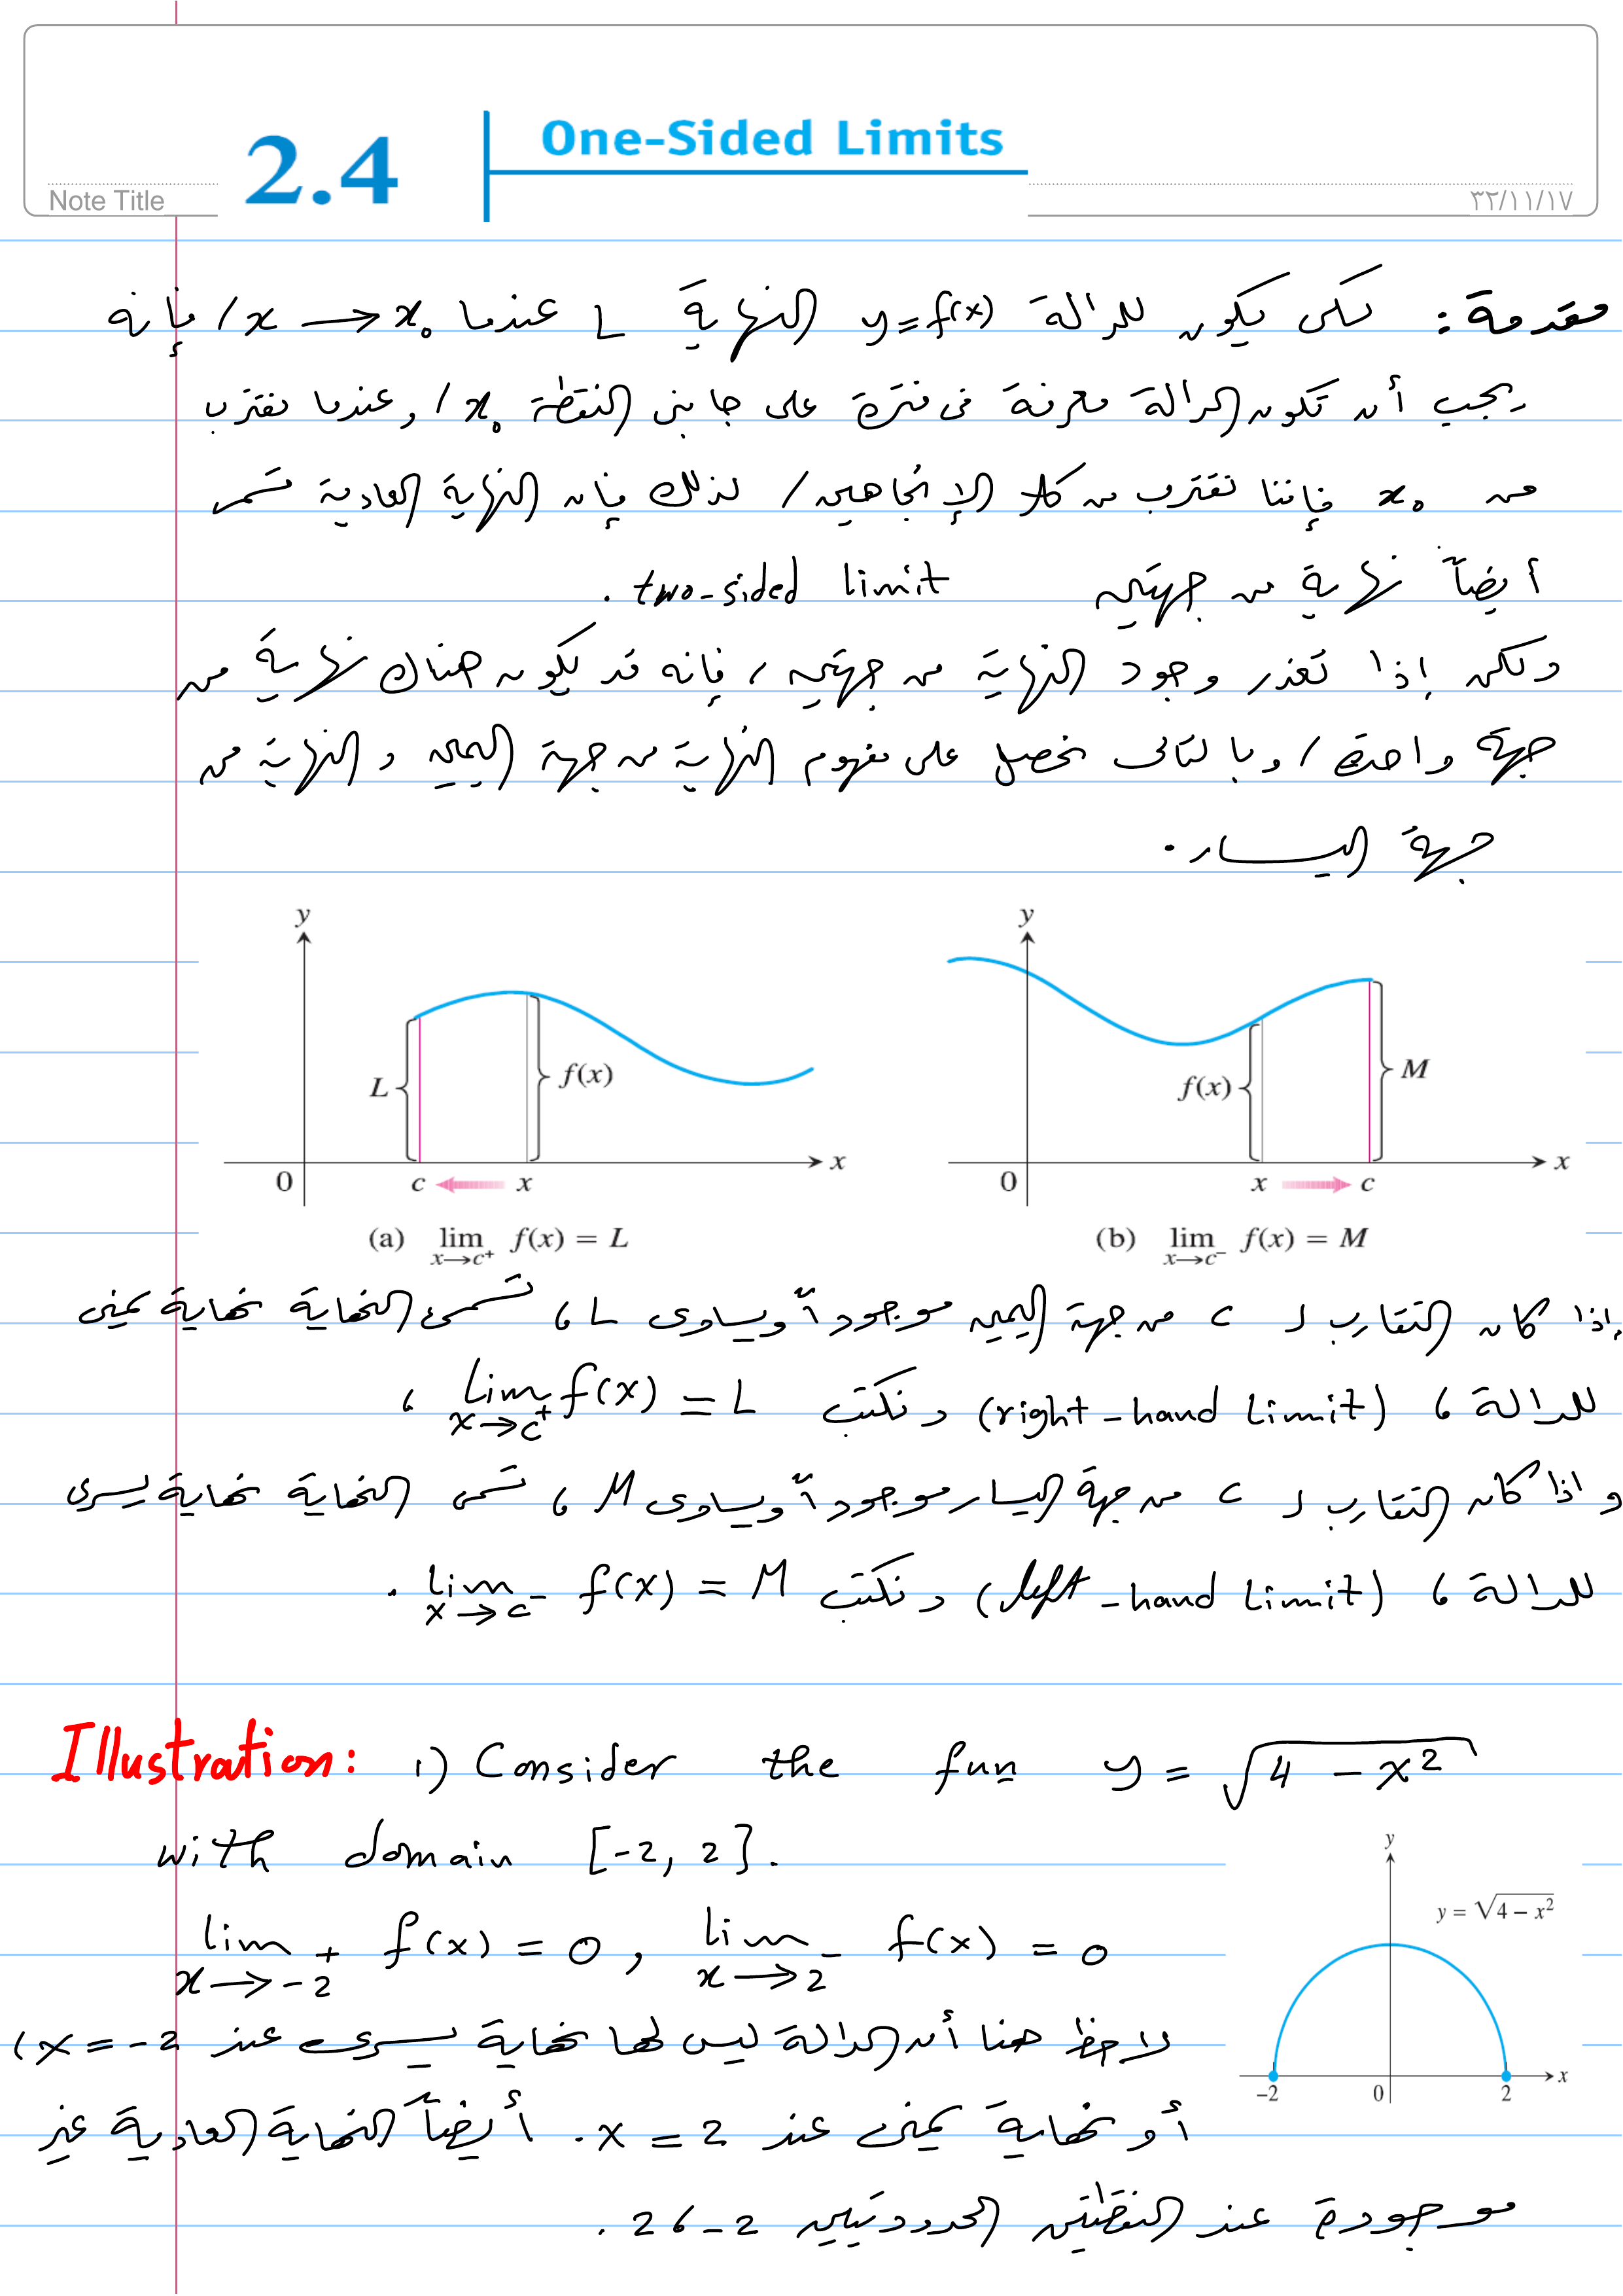 2.4 One-Sided Limits
Note Title
٣٢/١١/١٧
مقدمة: لكى يكون للدالة y=f(x) النهاية L عندما x → x₀ / فإنه
يجب أن تكون الدالة معرفة فى فترة على جانبى النقطة x₀ / وعندما نقترب
من x₀ فإننا نقترب من كلا الإتجاهين / لذلك فإن النهاية العادية تسمى
أيضاً نهاية من جهتين two-sided limit .
ولكن إذا تعذر وجود النهاية من جهتين ، فإنه قد يكون هناك نهاية من
جهة واحدة / وبالتالى نحصل على مفهوم النهاية من جهة اليمين و النهاية من
جهة اليسار .
y
y
L
f(x)
f(x)
M
0 c x x
0 x c x
(a) lim x→c⁺ f(x) = L
(b) lim x→c⁻ f(x) = M
إذا كان التقارب لـ c من جهة اليمين موجوداً ويساوى L ، تسمى النهاية نهاية يمنى
للدالة ، (right-hand limit) ونكتب lim x→c⁺ f(x) = L ،
و اذا كان التقارب لـ c من جهة اليسار موجوداً ويساوى M ، تسمى النهاية نهاية يسرى
للدالة ، (left-hand limit) ونكتب lim x→c⁻ f(x) = M .
Illustration: 1) Consider the fun y = √(4 - x²)
with domain [-2, 2].
lim x→-2⁺ f(x) = 0 , lim x→2⁻ f(x) = 0
y
y = √(4 - x²)
-2 0 2 x
لاحظ هنا أن الدالة ليس لها نهاية يسرى عند x = -2 ،
أو نهاية يمنى عند x = 2 . أيضاً النهاية العادية غير
موجودة عند النقطتين الحدوديتين -2 ، 2 .